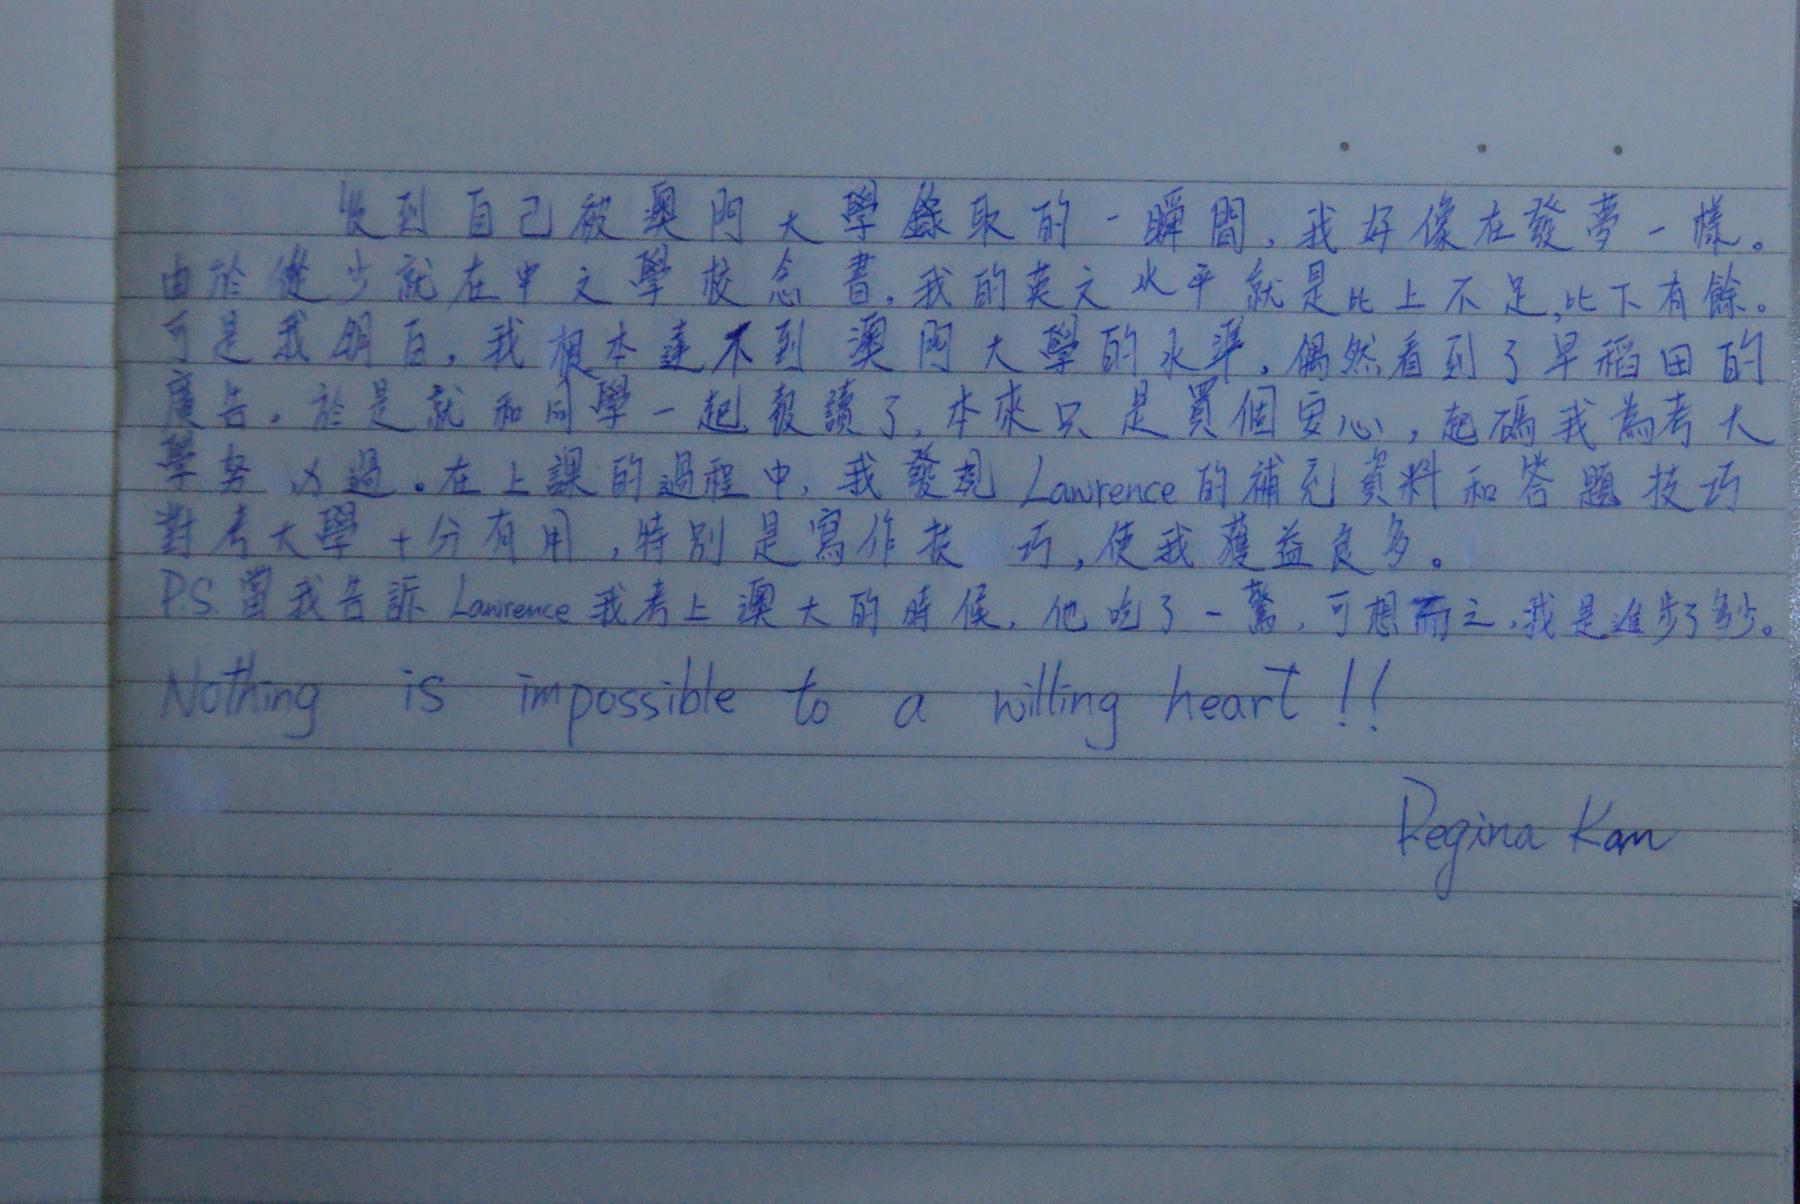 收到自己被澳門大學錄取的一瞬間，我好像在發夢一樣。
由於從少就在中文學校念書，我的英文水平就是比上不足，比下有餘。
可是我明白，我根本達不到澳門大學的水準。偶然看到了早稻田的
廣告，於是就和同學一起報讀了，本來只是買個安心，起碼我為考大
學努力過。在上課的過程中，我發現Lawrence的補充資料和答題技巧
對考大學十分有用，特別是寫作技巧，使我獲益良多。
P.S.當我告訴Lawrence我考上澳大的時候，他吃了一驚，可想而之，我是進步了多少。
Nothing is impossible to a willing heart!!
Regina Kam